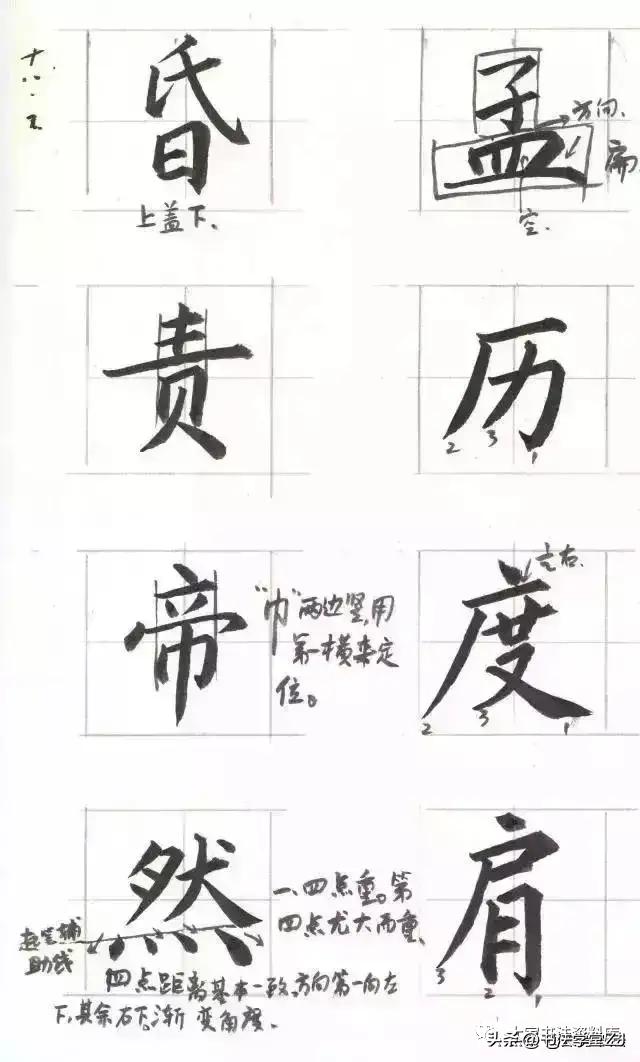 十八.五
昏
上盖下.
孟
方向.
扁
空.
责
历
2 3 1
帝
“巾”两边竖,用
第一横来定
位。
度
之右.
2 3 1
然
起笔辅
助线
一、四点重。第
四点尤大而重.
四点距离基本一致,方向第一向左
下,其余右下。渐变角度.
肩
3 2 1
大家书法资料库
头条@书法学堂Zg